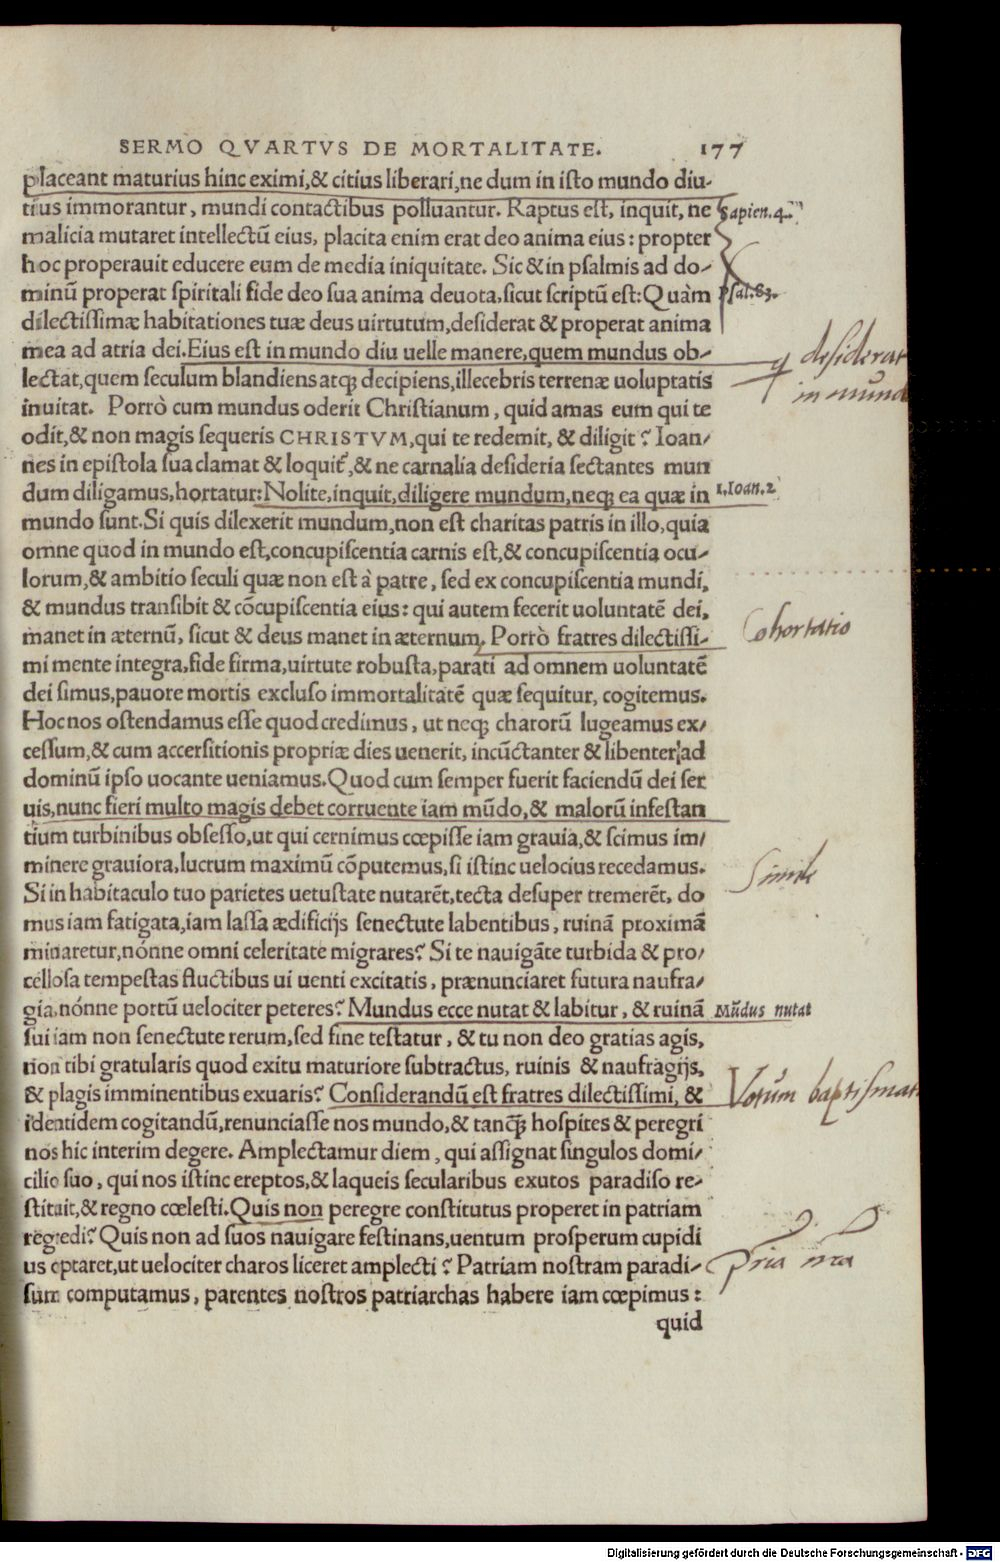 SERMO QVARTVS DE MORTALITATE. 177
placeant maturius hinc eximi,& citius liberari,ne dum in isto mundo diu-
tius immorantur, mundi contactibus polluantur. Raptus est, inquit, ne Sapien.4.
malicia mutaret intellectũ eius, placita enim erat deo anima eius: propter
hoc properauit educere eum de media iniquitate. Sic & in psalmis ad do-
minũ properat spiritali fide deo sua anima deuota,sicut scriptũ est: Quàm Psal.83.
dilectissimæ habitationes tuæ deus uirtutum,desiderat & properat anima
mea ad atria dei. Eius est in mundo diu uelle manere,quem mundus ob- q desiderat
lectat,quem seculum blandiens atq; decipiens,illecebris terrenæ uoluptatis in mund
inuitat. Porrò cum mundus oderit Christianum, quid amas eum qui te
odit,& non magis sequeris CHRISTVM,qui te redemit, & diligit? Ioan-
nes in epistola sua clamat & loquit᷑,& ne carnalia desideria sectantes mun
dum diligamus,hortatur: Nolite,inquit,diligere mundum,neq; ea quæ in 1.Ioan.2
mundo sunt.Si quis dilexerit mundum,non est charitas patris in illo,quia
omne quod in mundo est,concupiscentia carnis est,& concupiscentia ocu-
lorum,& ambitio seculi quæ non est à patre, sed ex concupiscentia mundi,
& mundus transibit & cõcupiscentia eius: qui autem fecerit uoluntatẽ dei,
manet in æternũ, sicut & deus manet in æternum. Porrò fratres dilectissi- Cohortatio
mi mente integra,fide firma,uirtute robusta,parati ad omnem uoluntatẽ
dei simus,pauore mortis excluso immortalitatẽ quæ sequitur, cogitemus.
Hoc nos ostendamus esse quod credimus, ut neq; charorũ lugeamus ex-
cessum,& cum accersitionis propriæ dies uenerit, incũctanter & libenter ad
dominũ ipso uocante ueniamus. Quod cum semper fuerit faciendũ dei ser
uis,nunc fieri multo magis debet corruente iam mũdo,& malorũ infestan
tium turbinibus obsesso,ut qui cernimus cœpisse iam grauia,& scimus im-
minere grauiora,lucrum maximũ cõputemus,si istinc uelocius recedamus. Simile
Si in habitaculo tuo parietes uetustate nutarẽt,tecta desuper tremerẽt, do
mus iam fatigata,iam lassa ædificijs senectute labentibus, ruinã proximã
minaretur,nónne omni celeritate migrares? Si te nauigãte turbida & pro-
cellosa tempestas fluctibus ui uenti excitatis, prænunciaret futura naufra-
gia,nónne portũ uelociter peteres? Mundus ecce nutat & labitur, & ruinã Mũdus nutat
sui iam non senectute rerum,sed fine testatur, & tu non deo gratias agis,
non tibi gratularis quod exitu maturiore subtractus, ruinis & naufragijs,
& plagis imminentibus exuaris? Considerandũ est fratres dilectissimi, & Votum baptismat
identidem cogitandũ,renunciasse nos mundo,& tanq̃; hospites & peregri
nos hic interim degere. Amplectamur diem, qui assignat singulos domi-
cilio suo, qui nos istinc ereptos,& laqueis secularibus exutos paradiso re-
stituit,& regno cœlesti. Quis non peregre constitutus properet in patriam
regredi? Quis non ad suos nauigare festinans,uentum prosperum cupidi
us optaret,ut uelociter charos liceret amplecti? Patriam nostram paradi- Pria nra
sum computamus, parentes nostros patriarchas habere iam cœpimus:
quid
Digitalisierung gefördert durch die Deutsche Forschungsgemeinschaft - DFG